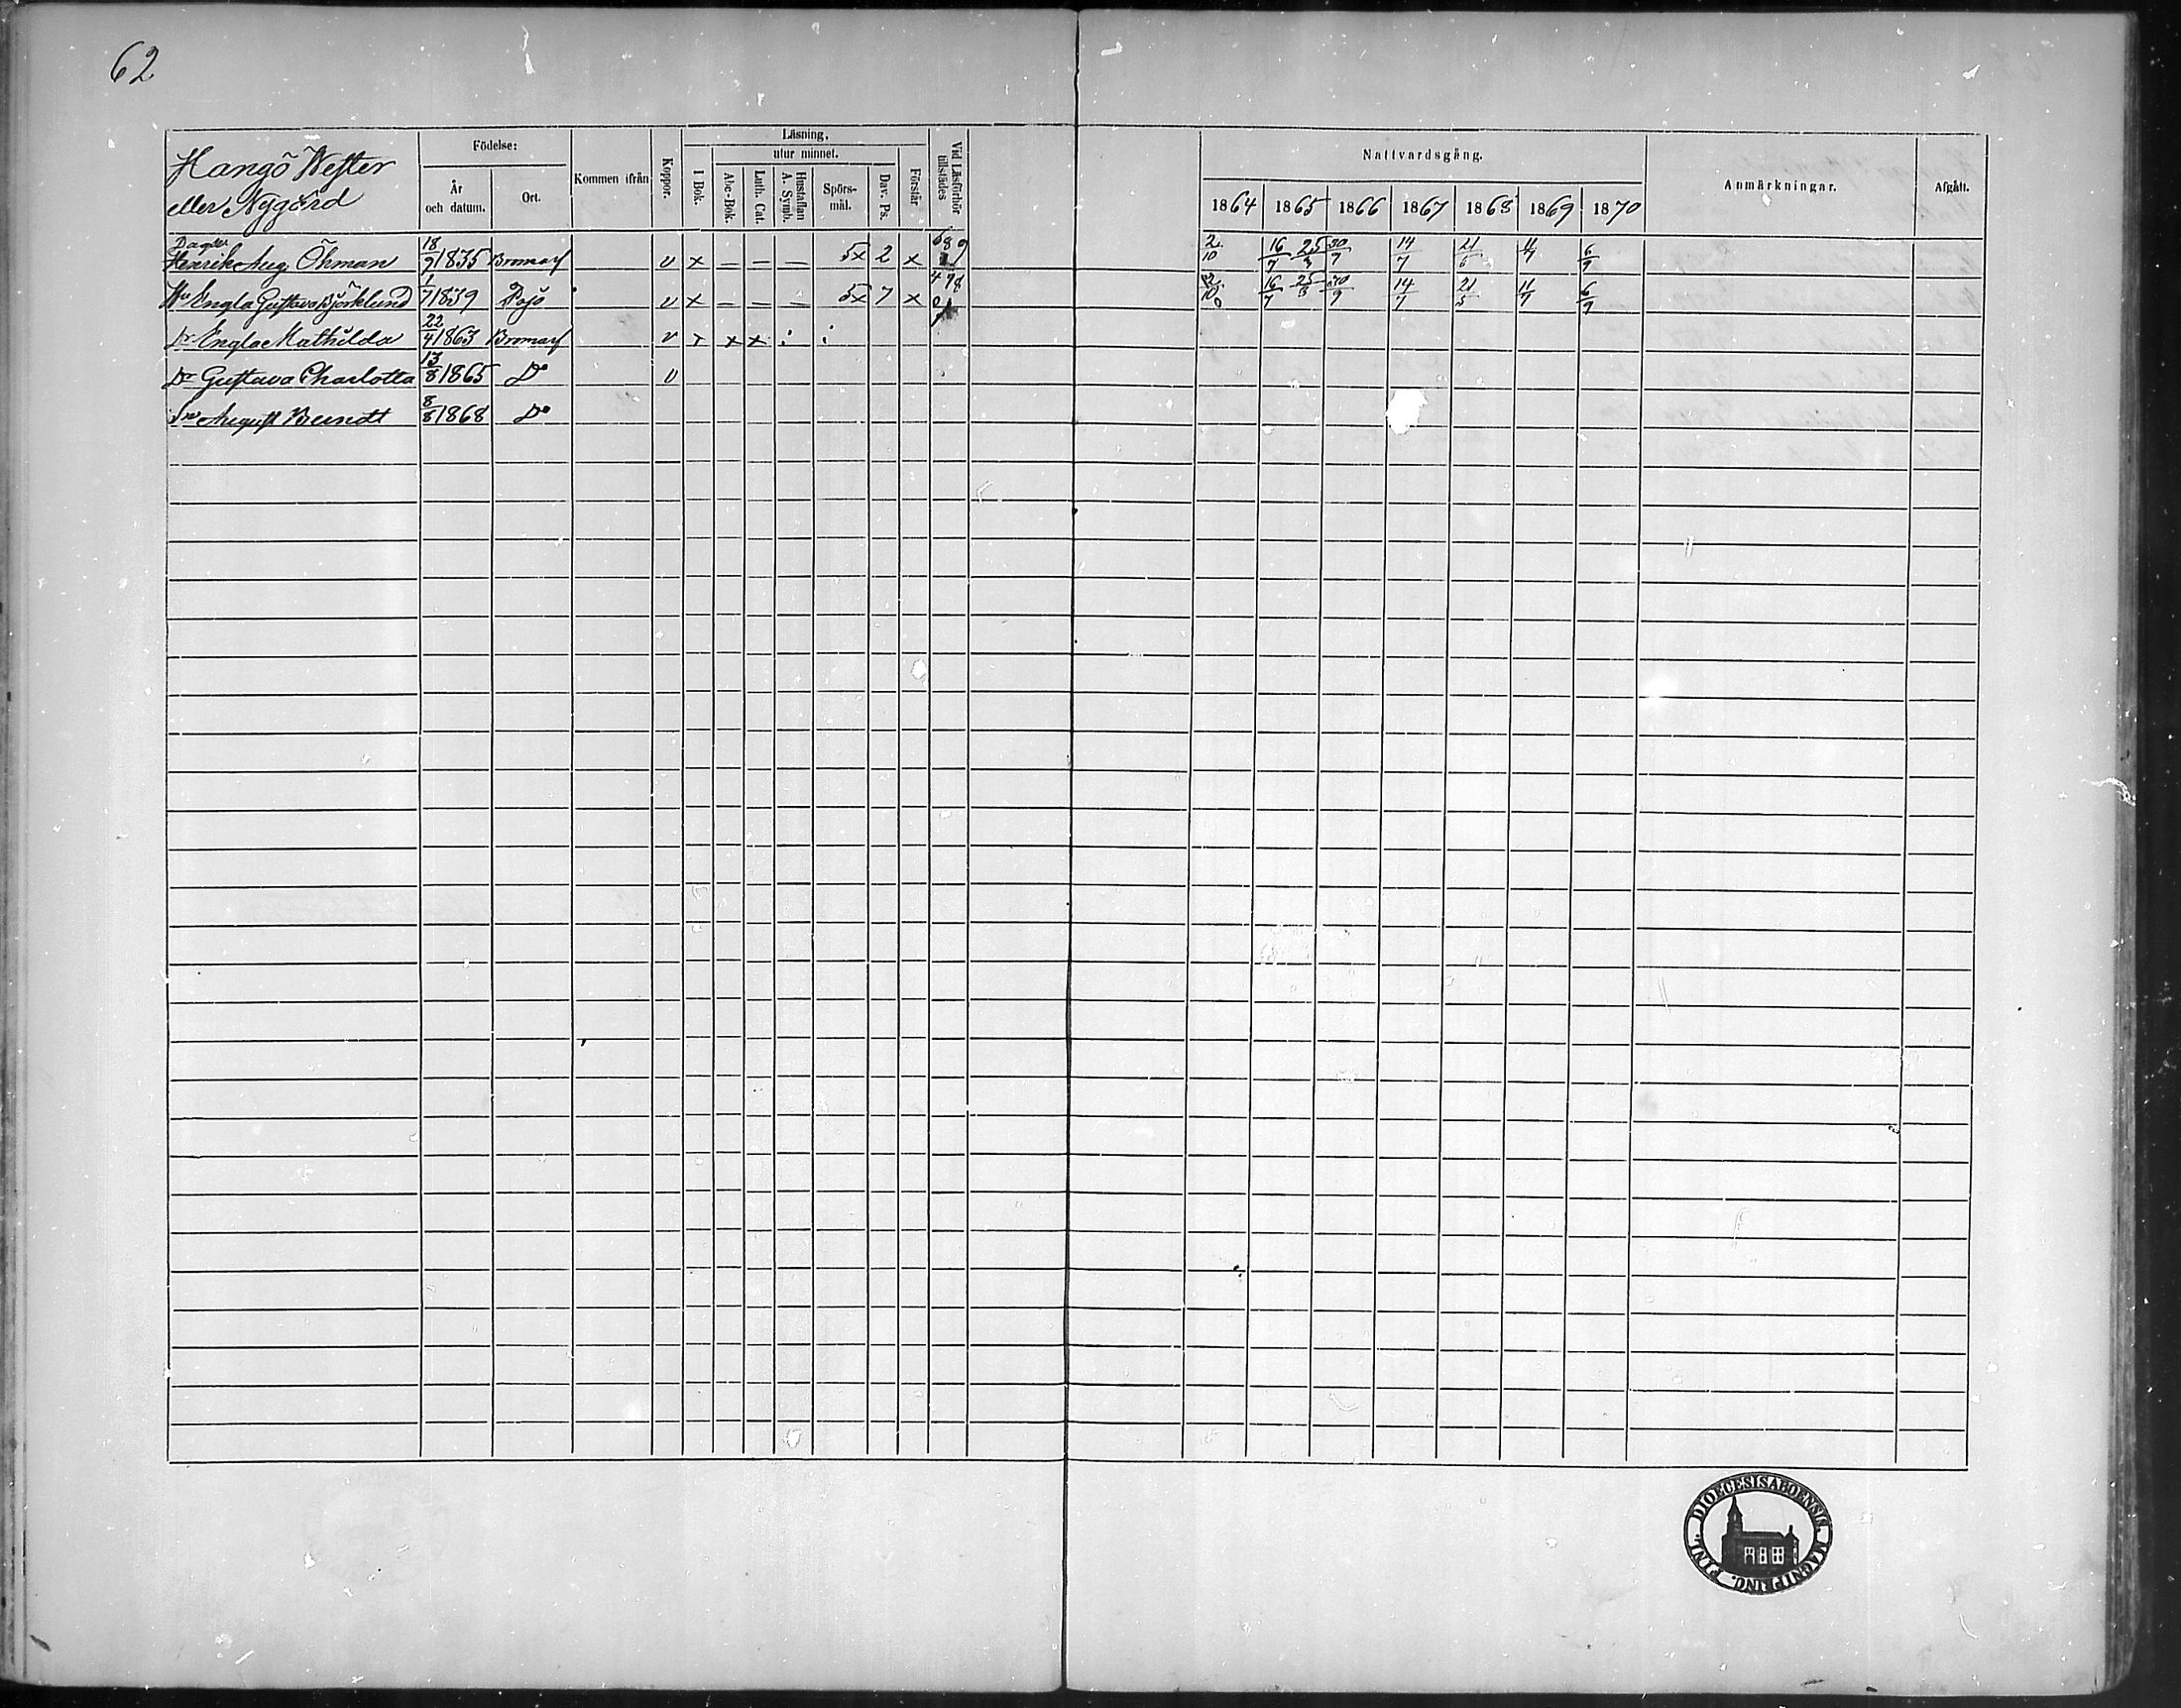 62
Hangö Wester
eller Nygård
Födelse:
År och datum.
Ort.
Kommen ifrån
Koppor.
Läsning,
utur minnet.
I Bok.
Abc-Bok.
Luth. Cat.
Hustaflan A. Symb.
Spörs-mål.
Dav. Ps.
Förstår
Vid Läsförhör tillstädes
Nattvardsgång.
1864 1865 1866 1867 1868 1869 1870
Anmärkningar.
Afgått.
Henrik Aug. Öhman 18/9 1835 Bromarf v x — — — 5x 2 x 2/10 16/7 25/3 30/9 14/7 21/5 11/7 6/9
Hu Engla Gustava Björklund 1/7 1839 Pojo v x — — — 5x 7 x 2/10 16/7 25/3 30/9 14/7 21/5 11/7 6/9
Dr Engla Mathilda 22/4 1863 Bromarf v x x x : :
Dr Gustava Charlotta 13/8 1865 Do v
Sn August Berndt 8/8 1868 Do
DIOECESIS ABOENSIS. MAGNI PRINC. FINL.